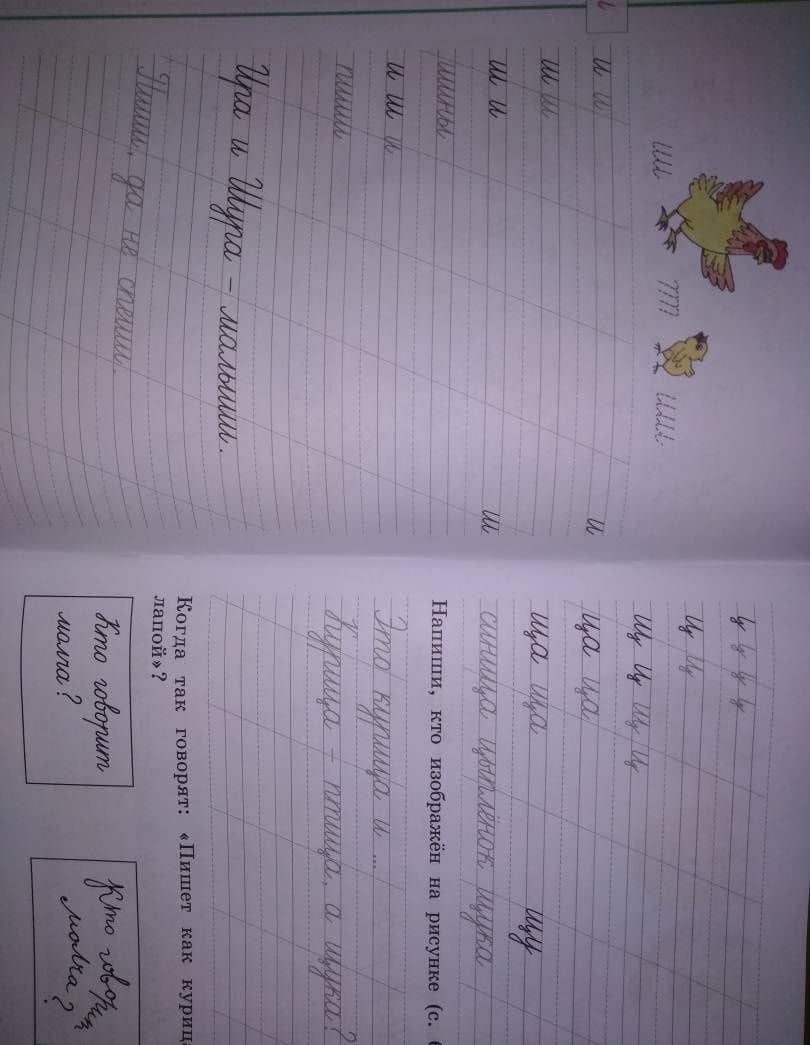 и и
ш ш и
ш и ш
шины
и ш и
пиши
Ира и Шура – малыши.
Пиши, да не спеши.
ц ц ц ц
ц ц
щ ц щ ц
ца ца
ща ща щу
синица цыплёнок щука
Напиши, кто изображён на рисунке (с.
Это курица и ...
Курица – птица, а щука?
Когда так говорят: «Пишет как курица
лапой»?
Кто говорит
молча?
Кто говорит
молча?